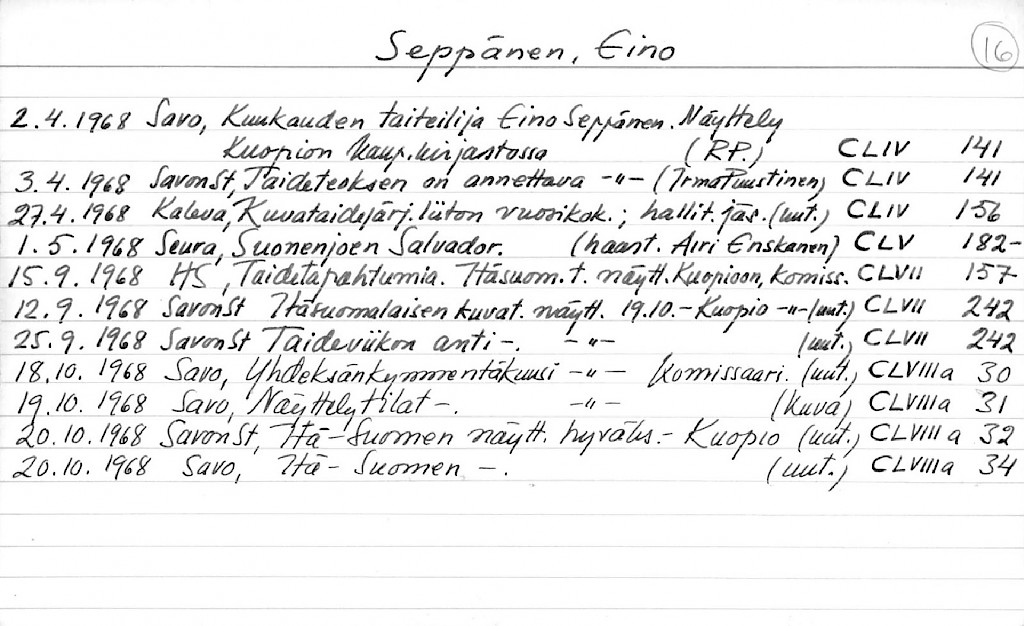 Seppänen, Eino 16
2.4.1968 Savo, Kuukauden taiteilija Eino Seppänen. Näyttely
Kuopion kaup.kirjastossa (R.P.) CLIV 141
3.4.1968 SavonSt, Taideteoksen on annettava -"- (Irma Puustinen) CLIV 141
27.4.1968 Kaleva, Kuvataidejärj. liiton vuosikok.; hallit. jäs. (uut.) CLIV 156
1.5.1968 Seura, Suonenjoen Salvador. (haast. Airi Enskanen) CLV 182-
15.9.1968 HS, Taidetapahtumia. Itäsuom.t. näytt. Kuopioon, komiss. CLVII 157
12.9.1968 SavonSt Itäsuomalaisen kuvat. näytt. 19.10.- Kuopio -"- (uut.) CLVII 242
25.9.1968 SavonSt Taideviikon anti -. -"- (uut.) CLVII 242
18.10.1968 Savo, Yhdeksänkymmentäkuusi -"- komissaari. (uut.) CLVIIIa 30
19.10.1968 Savo, Näyttelytilat -. -"- (kuva) CLVIIIa 31
20.10.1968 SavonSt, Itä-Suomen näytt. hyväks.- Kuopio (uut.) CLVIIIa 32
20.10.1968 Savo, Itä-Suomen -. (uut.) CLVIIIa 34